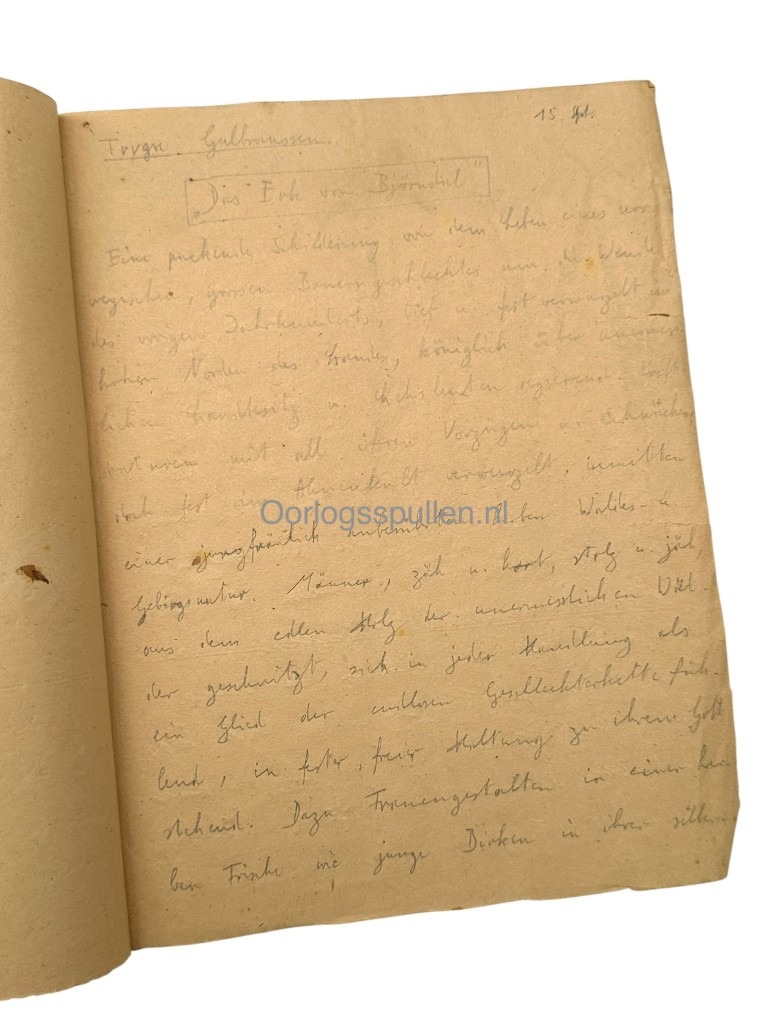 15. Spt.
Trygve Gulbranssen.
„Das Erbe von Björndal"
Eine packende Schilderung von dem Leben eines nor-
wegischen, grossen Bauerngeschlechtes um die Wende
des vorigen Jahrhunderts, tief u. fest verwurzelt im
hohen Norden des Landes, königlich über unermess-
lichen Landbesitz u. regierend.
naturen mit all ihren Vorzügen u. Schwächen,
doch fest im Ahnenkult verwurzelt, inmitten
Oorlogsspullen.nl
einer jungfräulich unberührten Wald- u.
Gebirgsnatur. Männer, zäh u. hart, stolz u. jäh,
aus dem edlen Holz der unermesslichen Wäl-
der geschnitzt, sich in jeder Handlung als
ein Glied der endlosen Geschlechterkette füh-
lend, in fester, freier Haltung zu ihrem Gott
stehend. Dazu Frauengestalten in einer her-
ben Frische wie junge Birken in ihrer silber-